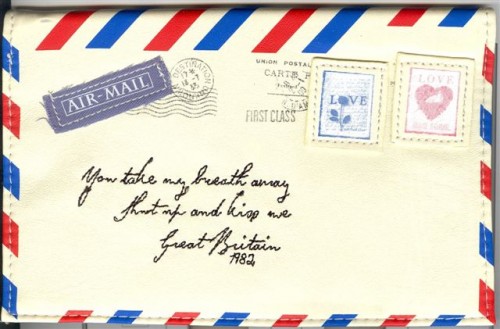 AIR-MAIL
DESTINATION
UNION POSTAL
CARTE P
FIRST CLASS
LOVE
LOVE
You take my breath away
Shut up and kiss me
Great Britain
1982